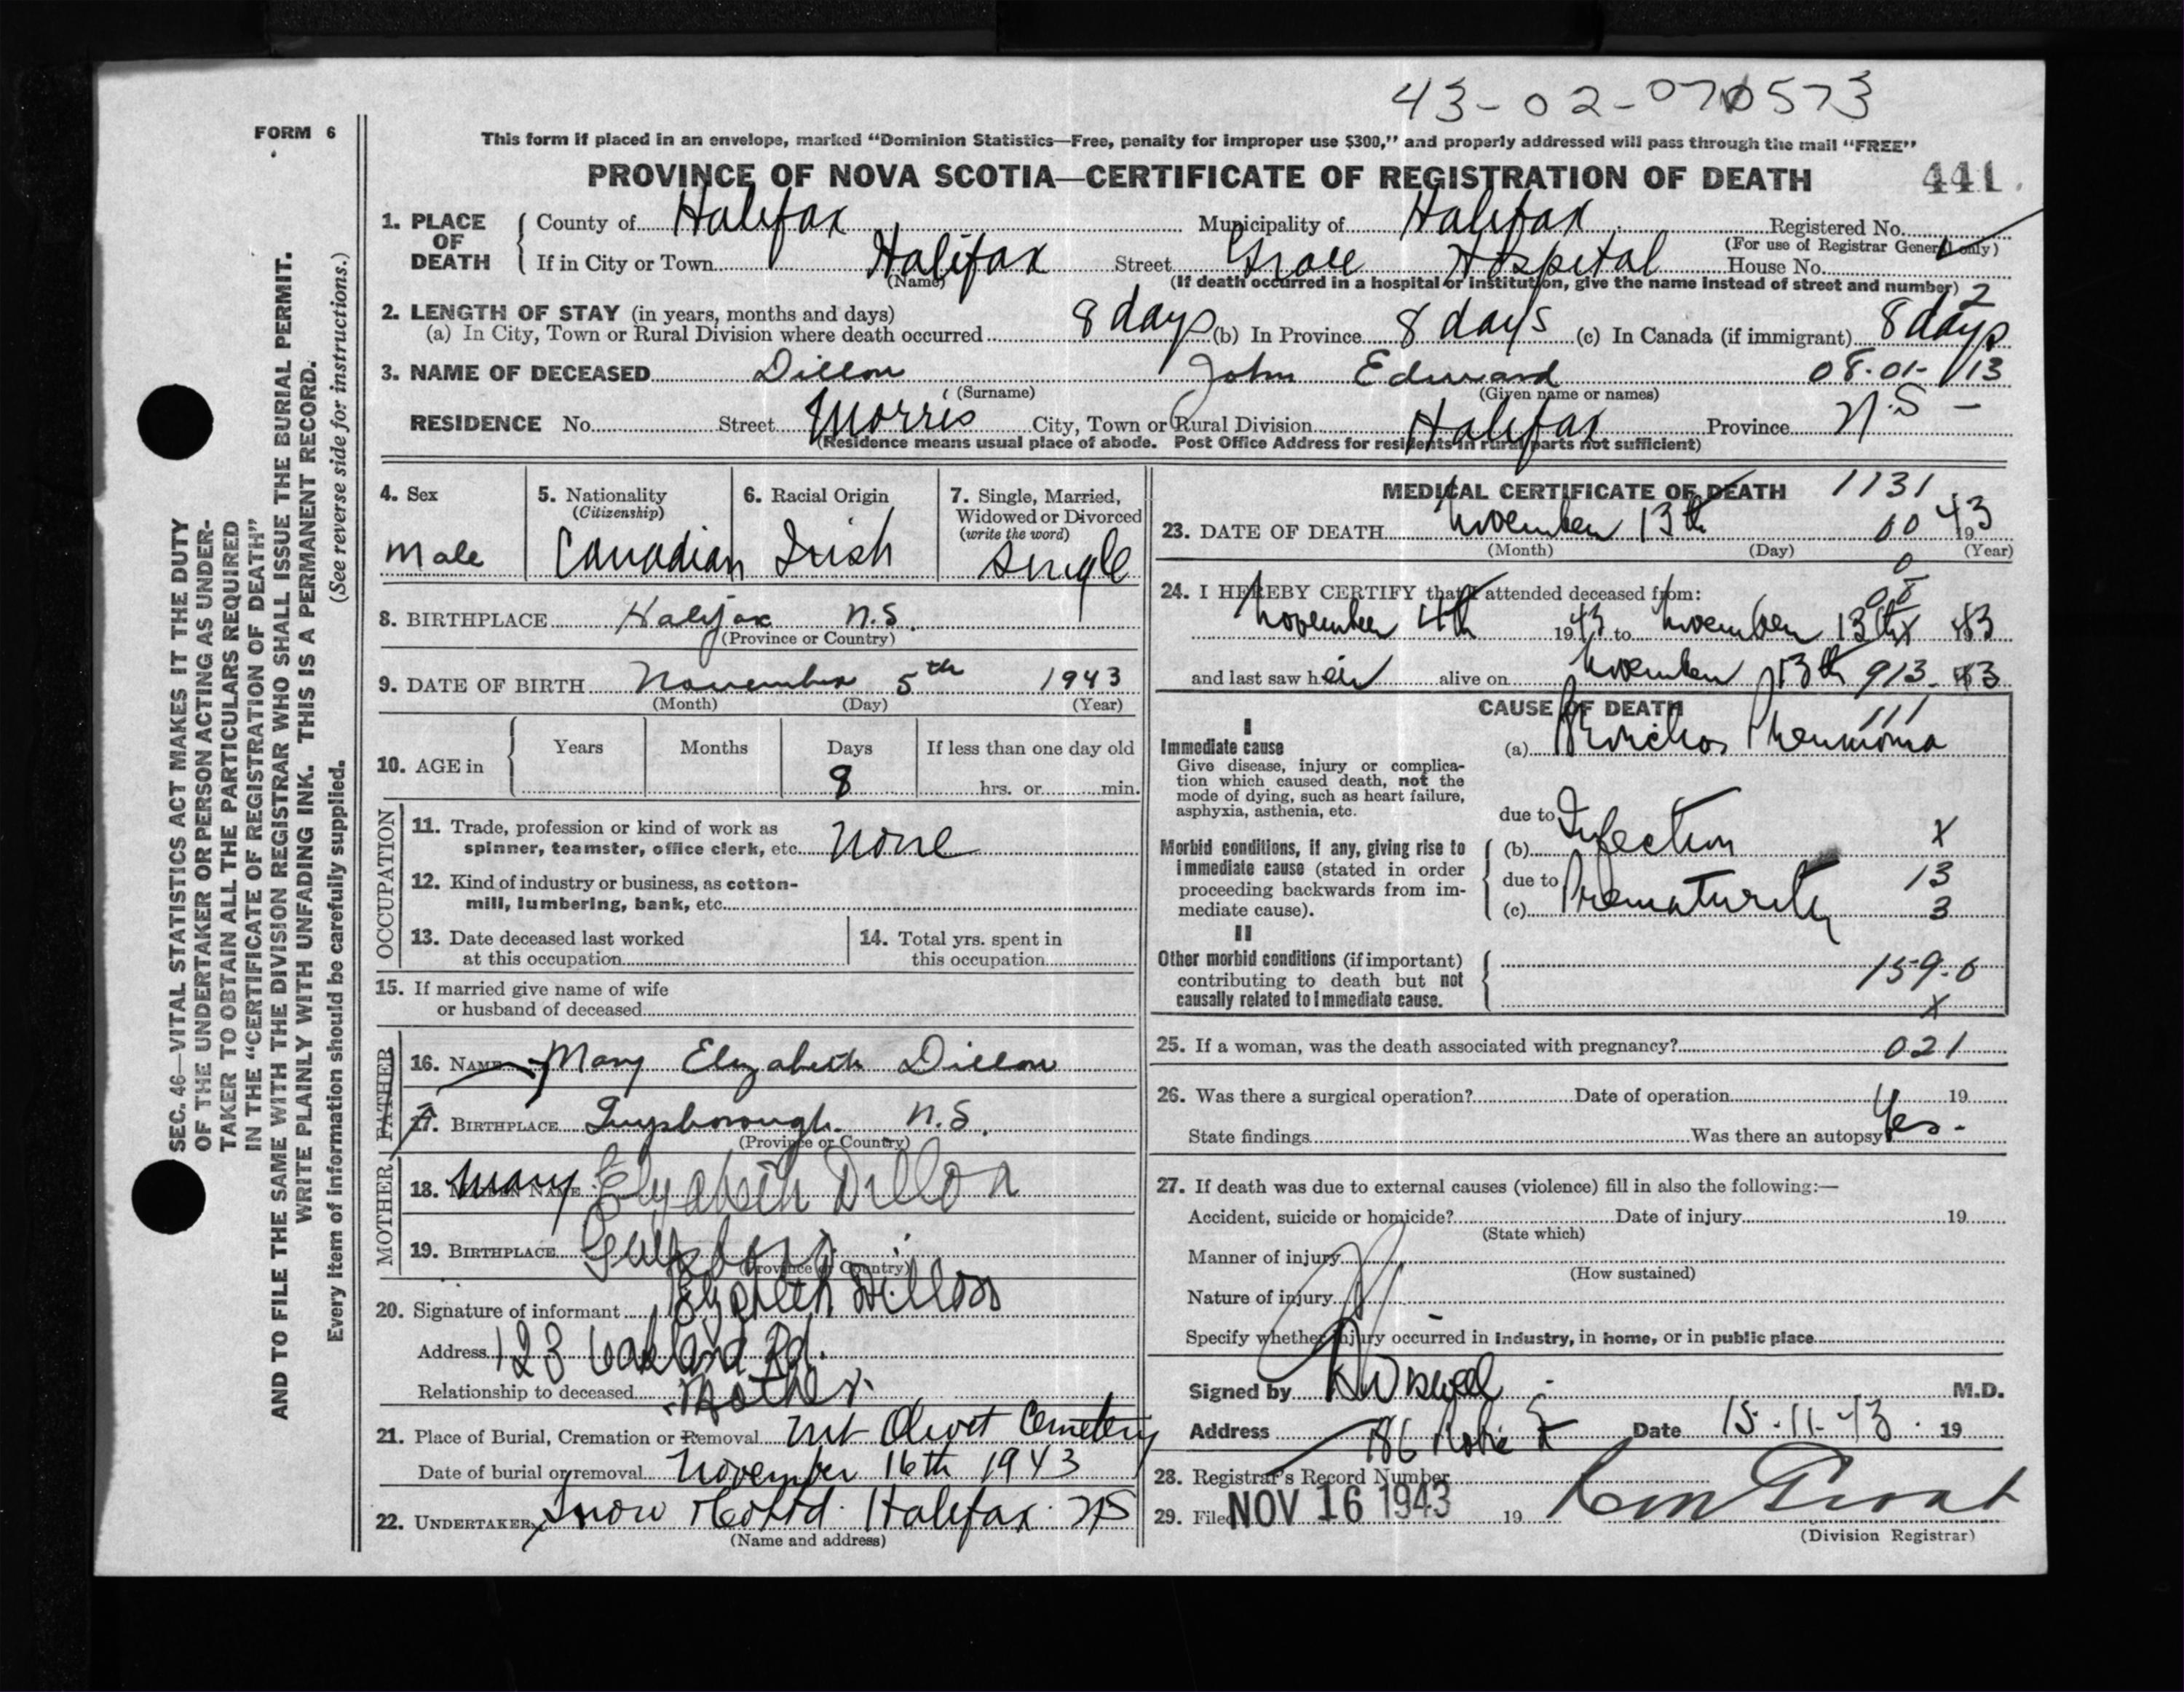 43-02-070573
FORM 6
This form if placed in an envelope, marked "Dominion Statistics—Free, penalty for improper use $300," and properly addressed will pass through the mail "FREE"
PROVINCE OF NOVA SCOTIA—CERTIFICATE OF REGISTRATION OF DEATH 441
1. PLACE OF DEATH
County of Halifax Municipality of Halifax Registered No.
(For use of Registrar General only)
If in City or Town Halifax Street Grace Hospital House No.
(Name) (If death occurred in a hospital or institution, give the name instead of street and number) 2
2. LENGTH OF STAY (in years, months and days)
(a) In City, Town or Rural Division where death occurred 8 days (b) In Province 8 days (c) In Canada (if immigrant) 8 days
3. NAME OF DECEASED Dillon John Edward 08-01-113
(Surname) (Given name or names)
RESIDENCE No. Street Morris City, Town or Rural Division Halifax Province N.S -
(Residence means usual place of abode. Post Office Address for residents in rural parts not sufficient)
4. Sex Male
5. Nationality (Citizenship) Canadian
6. Racial Origin Irish
7. Single, Married, Widowed or Divorced (write the word) Single
8. BIRTHPLACE Halifax N.S.
(Province or Country)
9. DATE OF BIRTH November 5th 1943
(Month) (Day) (Year)
10. AGE in Years Months Days If less than one day old
8 hrs. or min.
OCCUPATION
11. Trade, profession or kind of work as
spinner, teamster, office clerk, etc. None
12. Kind of industry or business, as cotton-
mill, lumbering, bank, etc.
13. Date deceased last worked
at this occupation
14. Total yrs. spent in
this occupation
15. If married give name of wife
or husband of deceased
FATHER
16. NAME Mary Elizabeth Dillon
17. BIRTHPLACE Guysborough. N.S.
(Province or Country)
MOTHER
18. MAIDEN NAME Mary Elizabeth Dillon
19. BIRTHPLACE
(Province or Country)
20. Signature of informant Elizabeth Dillon
Address 123 Oakland Rd.
Relationship to deceased Mother.
21. Place of Burial, Cremation or Removal Mt Olivet Cemetery
Date of burial or removal November 16th 1943
22. UNDERTAKER Snow & Co Ltd. Halifax NS
(Name and address)
MEDICAL CERTIFICATE OF DEATH 1131
23. DATE OF DEATH November 13th 00 1943
(Month) (Day) (Year)
0
24. I HEREBY CERTIFY that I attended deceased from:
November 4th 1943 to November 13th 43
and last saw h alive on November 13th 913 43
CAUSE OF DEATH
111
I
Immediate cause
Give disease, injury or complica-
tion which caused death, not the
mode of dying, such as heart failure,
asphyxia, asthenia, etc.
(a) Bronchos Pneumonia
due to
Morbid conditions, if any, giving rise to
immediate cause (stated in order
proceeding backwards from im-
mediate cause).
(b) Infection X
due to 13
(c) Prematurity 3
II
Other morbid conditions (if important)
contributing to death but not
causally related to immediate cause.
159.0
X
25. If a woman, was the death associated with pregnancy? 021
26. Was there a surgical operation? Date of operation 19
State findings Was there an autopsy Yes -
27. If death was due to external causes (violence) fill in also the following:—
Accident, suicide or homicide? Date of injury 19
(State which)
Manner of injury
(How sustained)
Nature of injury
Specify whether injury occurred in industry, in home, or in public place
Signed by M.D.
Address 186 Robie St Date 15-11-43. 19
28. Registrar's Record Number
29. Filed NOV 16 1943 19
(Division Registrar)
SEC. 46—VITAL STATISTICS ACT MAKES IT THE DUTY
OF THE UNDERTAKER OR PERSON ACTING AS UNDER-
TAKER TO OBTAIN ALL THE PARTICULARS REQUIRED
IN THE "CERTIFICATE OF REGISTRATION OF DEATH"
AND TO FILE THE SAME WITH THE DIVISION REGISTRAR WHO SHALL ISSUE THE BURIAL PERMIT.
WRITE PLAINLY WITH UNFADING INK. THIS IS A PERMANENT RECORD.
Every item of information should be carefully supplied. (See reverse side for instructions.)